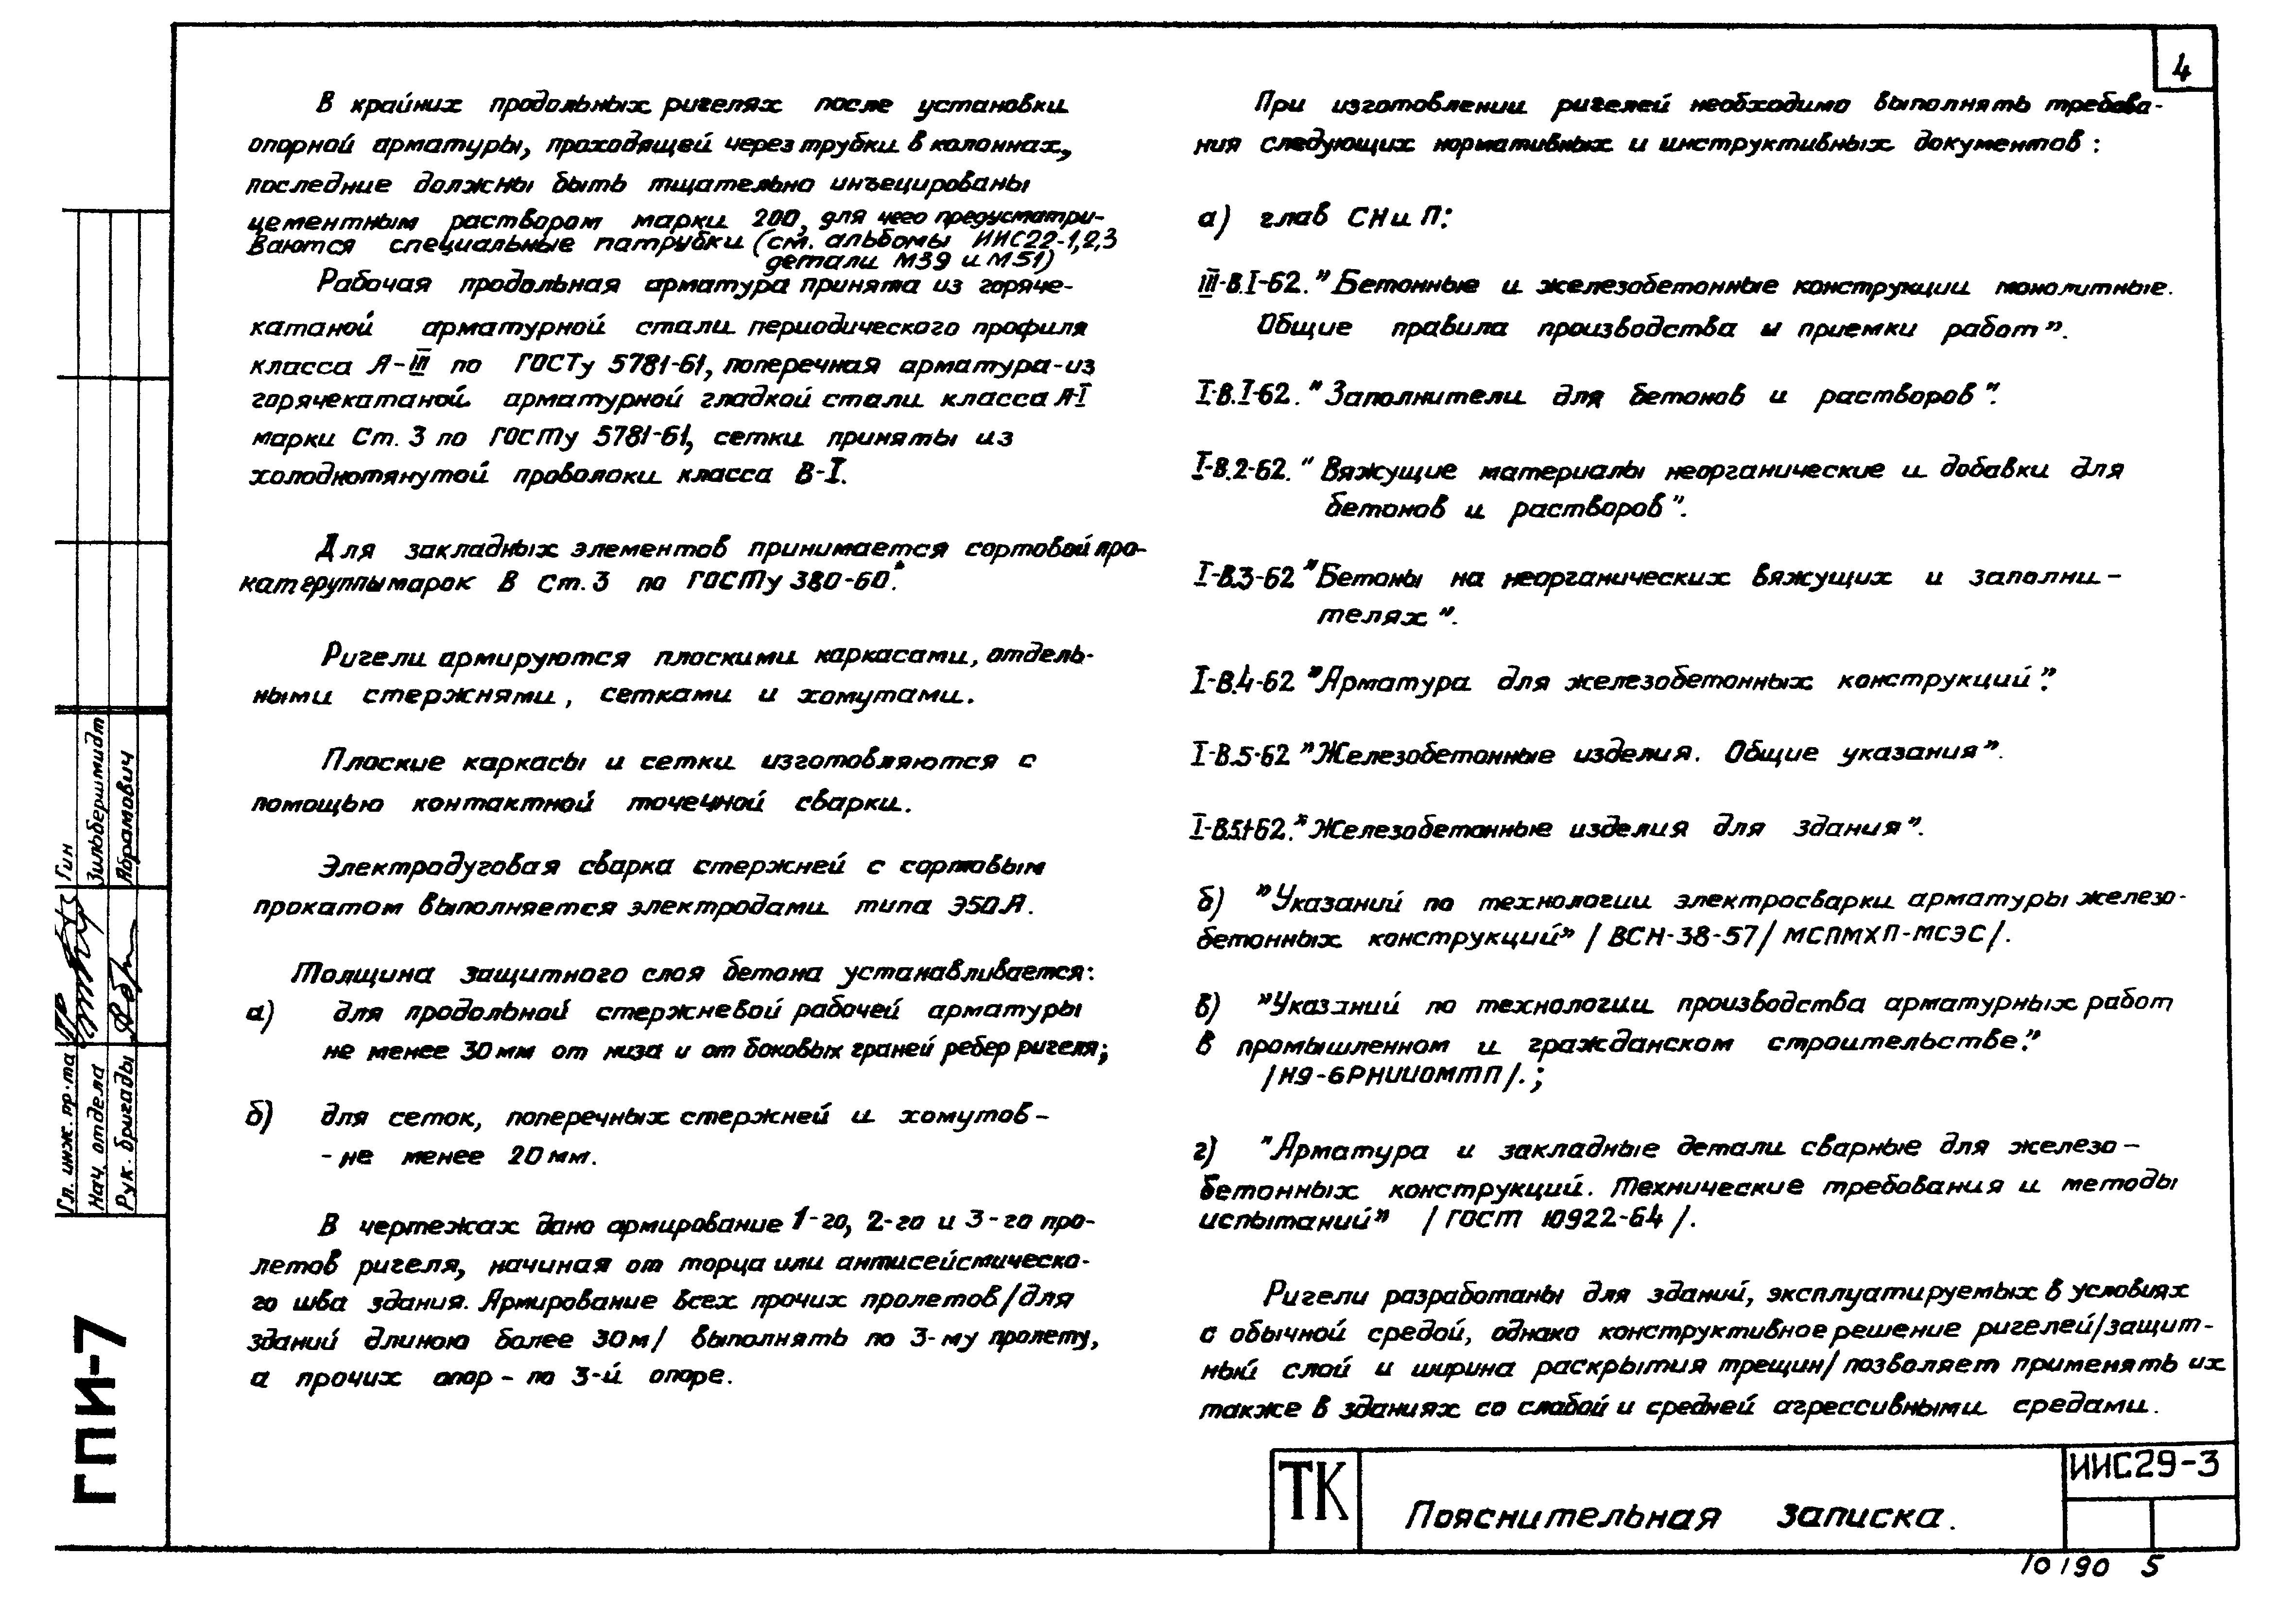 4
В крайних продольных ригелях после установки
опорной арматуры, проходящей через трубки в колоннах,
последние должны быть тщательно инъецированы
цементным раствором марки 200, для чего предусматри-
ваются специальные патрубки (см. альбомы ИИС22-1,2,3
детали М39 и М51)
Рабочая продольная арматура принята из горяче-
катаной арматурной стали периодического профиля
класса А-III по ГОСТу 5781-61, поперечная арматура-из
горячекатаной арматурной гладкой стали класса А-I
марки Ст. 3 по ГОСТу 5781-61, сетки приняты из
холоднотянутой проволоки класса В-I.
Для закладных элементов принимается сортовой про-
кат группы марок В Ст.3 по ГОСТу 380-60.*
Ригели армируются плоскими каркасами, отдель-
ными стержнями, сетками и хомутами.
Плоские каркасы и сетки изготовляются с
помощью контактной точечной сварки.
Электродуговая сварка стержней с сортовым
прокатом выполняется электродами типа Э50А.
Толщина защитного слоя бетона устанавливается:
а) для продольной стержневой рабочей арматуры
не менее 30 мм от низа и от боковых граней ребер ригеля;
б) для сеток, поперечных стержней и хомутов-
- не менее 20 мм.
В чертежах дано армирование 1-го, 2-го и 3-го про-
летов ригеля, начиная от торца или антисейсмическо-
го шва здания. Армирование всех прочих пролетов/для
зданий длиною более 30м/ выполнять по 3-му пролету,
а прочих опор - по 3-й опоре.
При изготовлении ригелей необходимо выполнять требова-
ния следующих нормативных и инструктивных документов:
а) глав СНиП:
III-В.I-62. "Бетонные и железобетонные конструкции монолитные.
Общие правила производства и приемки работ".
I-В.I-62. "Заполнители для бетонов и растворов".
I-В.2-62. "Вяжущие материалы неорганические и добавки для
бетонов и растворов".
I-В.3-62 "Бетоны на неорганических вяжущих и заполни-
телях".
I-В.4-62 "Арматура для железобетонных конструкций".
I-В.5-62 "Железобетонные изделия. Общие указания".
I-В.5.1-62. "Железобетонные изделия для здания".
б) "Указаний по технологии электросварки арматуры железо-
бетонных конструкций" /ВСН-38-57/ МСПМХП-МСЭС/.
в) "Указаний по технологии производства арматурных работ
в промышленном и гражданском строительстве."
/И9-6РНИИОМТП/.;
г) "Арматура и закладные детали сварные для железо-
бетонных конструкций. Технические требования и методы
испытаний" /ГОСТ 10922-64/.
Ригели разработаны для зданий, эксплуатируемых в условиях
с обычной средой, однако конструктивное решение ригелей/защит-
ный слой и ширина раскрытия трещин/ позволяет применять их
также в зданиях со слабой и средней агрессивными средами.
Гл. инж. пр-та Гин
Нач. отдела Зильбершмидт
Рук. бригады Абрамович
ГПИ-7
ТК
Пояснительная записка.
ИИС29-3
10190 5